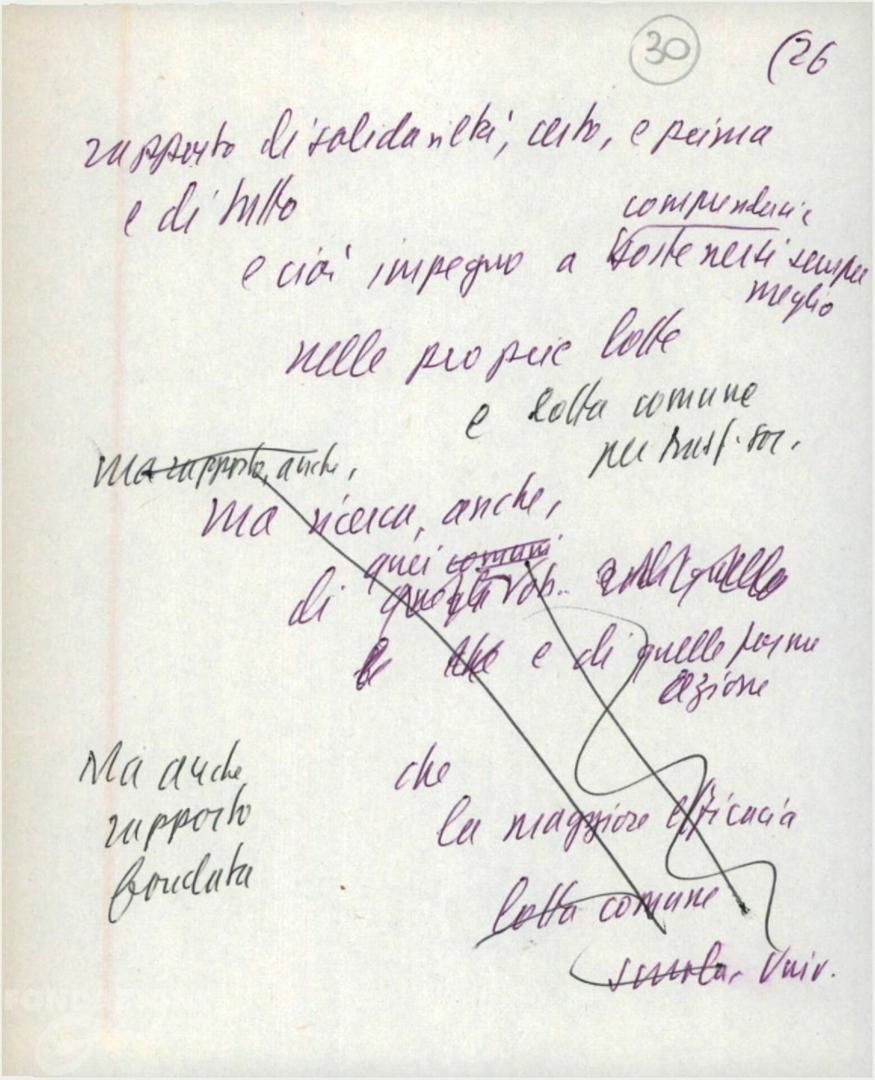 30 (26
rapporto di solidarietà, certo, e prima
e di tutto
comprendersi e
e cioè impegno a sostenersi sempre
meglio
nelle proprie lotte
e lotta comune
per trasf. soc.
Ma rapporto, anche,
Ma ricerca, anche,
quei comuni
di quegli ob.. quello
le che e di quelle forme
azione
Ma anche che
rapporto la maggiore efficacia
fondata
lotta comune
scuola, Univ.